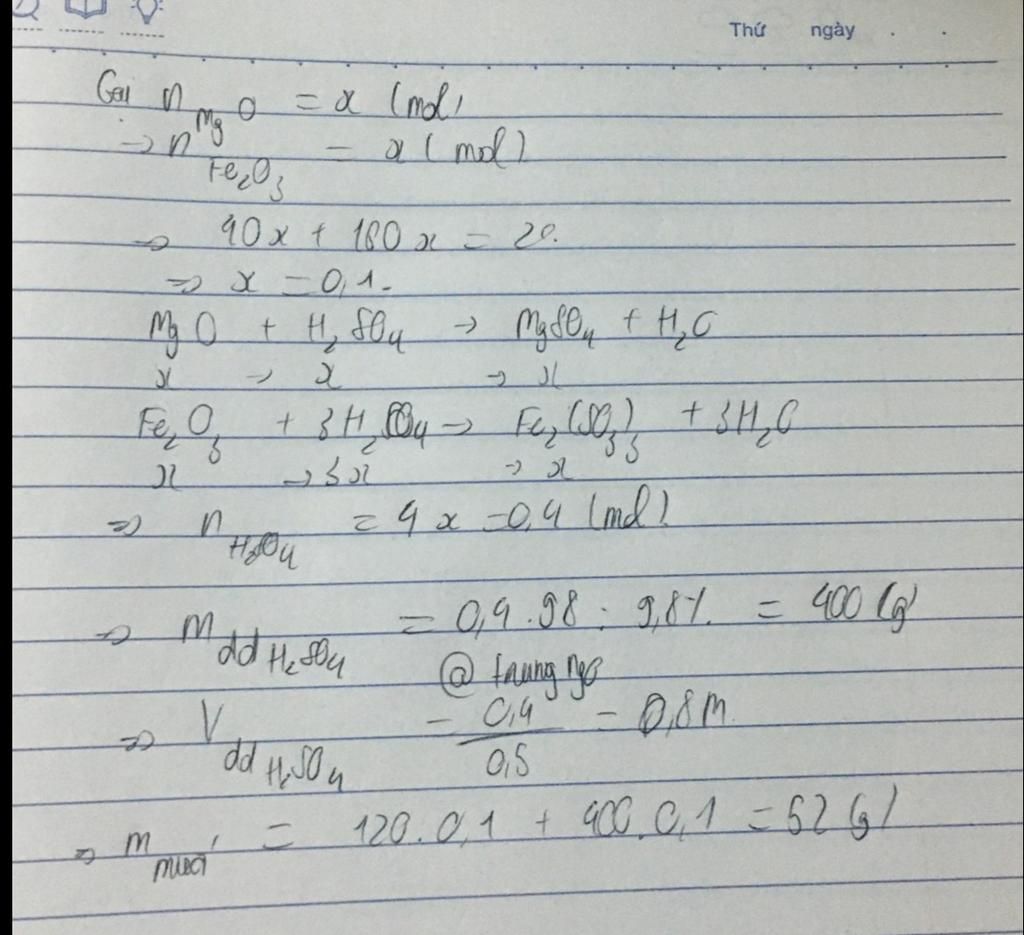 Thứ ngày . .
Gọi n MgO = x (mol)
→ n Fe₂O₃ = x (mol)
⇒ 40x + 160x = 20.
⇒ x = 0,1.
MgO + H₂SO₄ → MgSO₄ + H₂O
x → x → x
Fe₂O₃ + 3H₂SO₄ → Fe₂(SO₃)₃ + 3H₂O
x → 3x → x
⇒ n H₂SO₄ = 4x = 0,4 (mol)
⇒ m dd H₂SO₄ = 0,4 . 98 : 9,8% = 400 (g)
@ trungngo
⇒ V dd H₂SO₄ = 0,4 / 0,5 = 0,8M.
⇒ m muối = 120.0,1 + 400.0,1 = 52 (g)